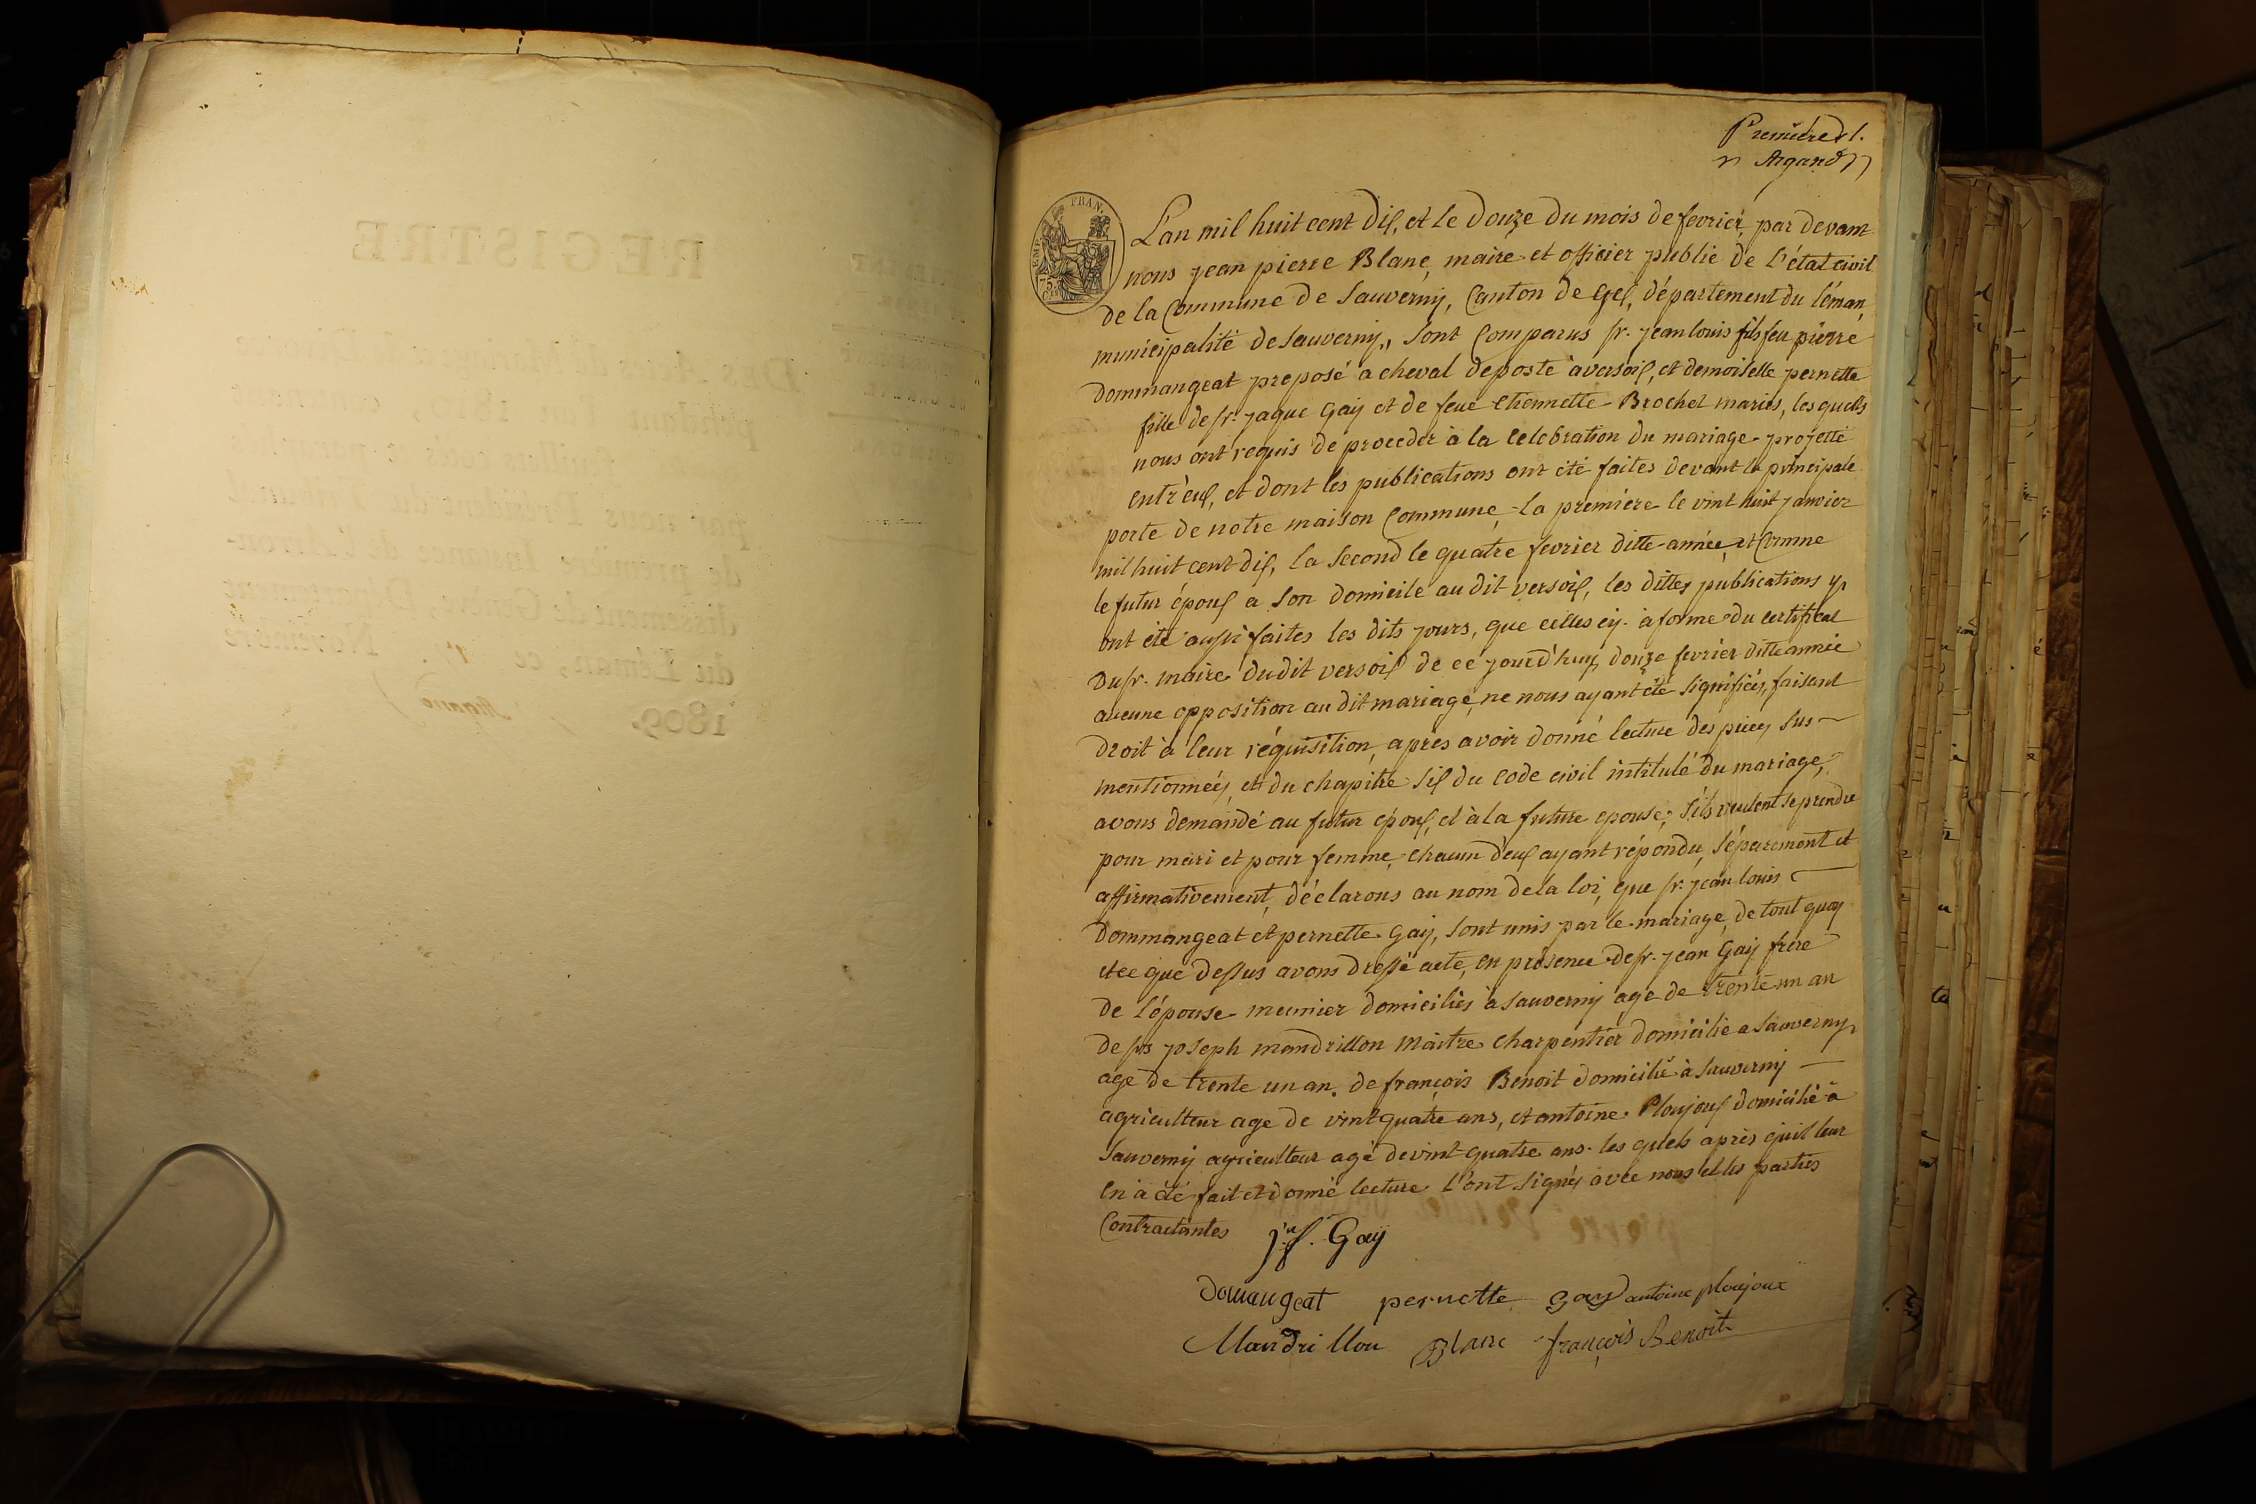 REGISTRE
1809.
Premiere
Argand
EMP. FRAN.
75.
L'an mil huit cent dix, et le douze du mois de fevrier, par devant
nous jean pierre Blanc, maire et officier public de l'état civil
de la Commune de Sauverny, Canton de Gex, département du léman,
municipalité de Sauverny, sont Comparus sr. jean louis fils feu pierre
Dommangeat preposé a cheval deposte à versoix, et demoiselle pernette
fille de sr. jaque Gay et de feue Etiennette Brochet mariés, les quels
nous ont requis de proceder à la Celebration du mariage projetté
entr'eux, et dont les publications ont été faites devant la principale
porte de notre maison Commune, la premiere le vint huit janvier
mil huit cent dix, la second le quatre fevrier ditte année, et Comme
le futur époux a son domicile au dit versoix, les dittes publications y
ont été aussi faites les dits jours, que celles cy. à forme du certificat
du sr. maire dudit versoix de ce jourd'huy douze fevrier ditte année
aucune opposition au dit mariage, ne nous ayant été signifiéz, faisant
droit à leur réquisition, après avoir donné lecture des pieces sus
mentionnées, et du chapitre six du Code civil intitulé du mariage,
avons demandé au futur époux, et à la future epouse; s'ils veulent se prendre
pour mari et pour femme, chacun deux ayant répondu, séparement et
affirmativement, déclarons au nom de la loi, que sr. jean louis
Dommangeat et pernette Gay, sont unis par le mariage, de tout quoy
et ce que dessus avons dressé acte, en présence de sr. jean Gay frère
de l'épouse meunier domiciliés à sauverny age de trente un an
de joseph mandrillon Maitre Charpentier domicilié a Sauverny,
age de trente un an. de françois Benoit domicilié à Sauverny
agriculteur age de vint quatre ans, et antoine Ploujoux domicilié à
Sauverny agriculteur agé de vint quatre ans. les quels après qu'il leur
en a été fait et donné lecture l'ont signés avec nous et les parties
Contractantes
Gay
Domangeat pernette Gay antoine ploujoux
Mandrillon Blanc françois Benoit